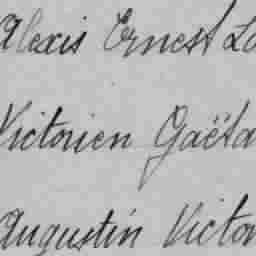 Alexis Ernest Lo
Victorien Gaëta
Augustin Victor